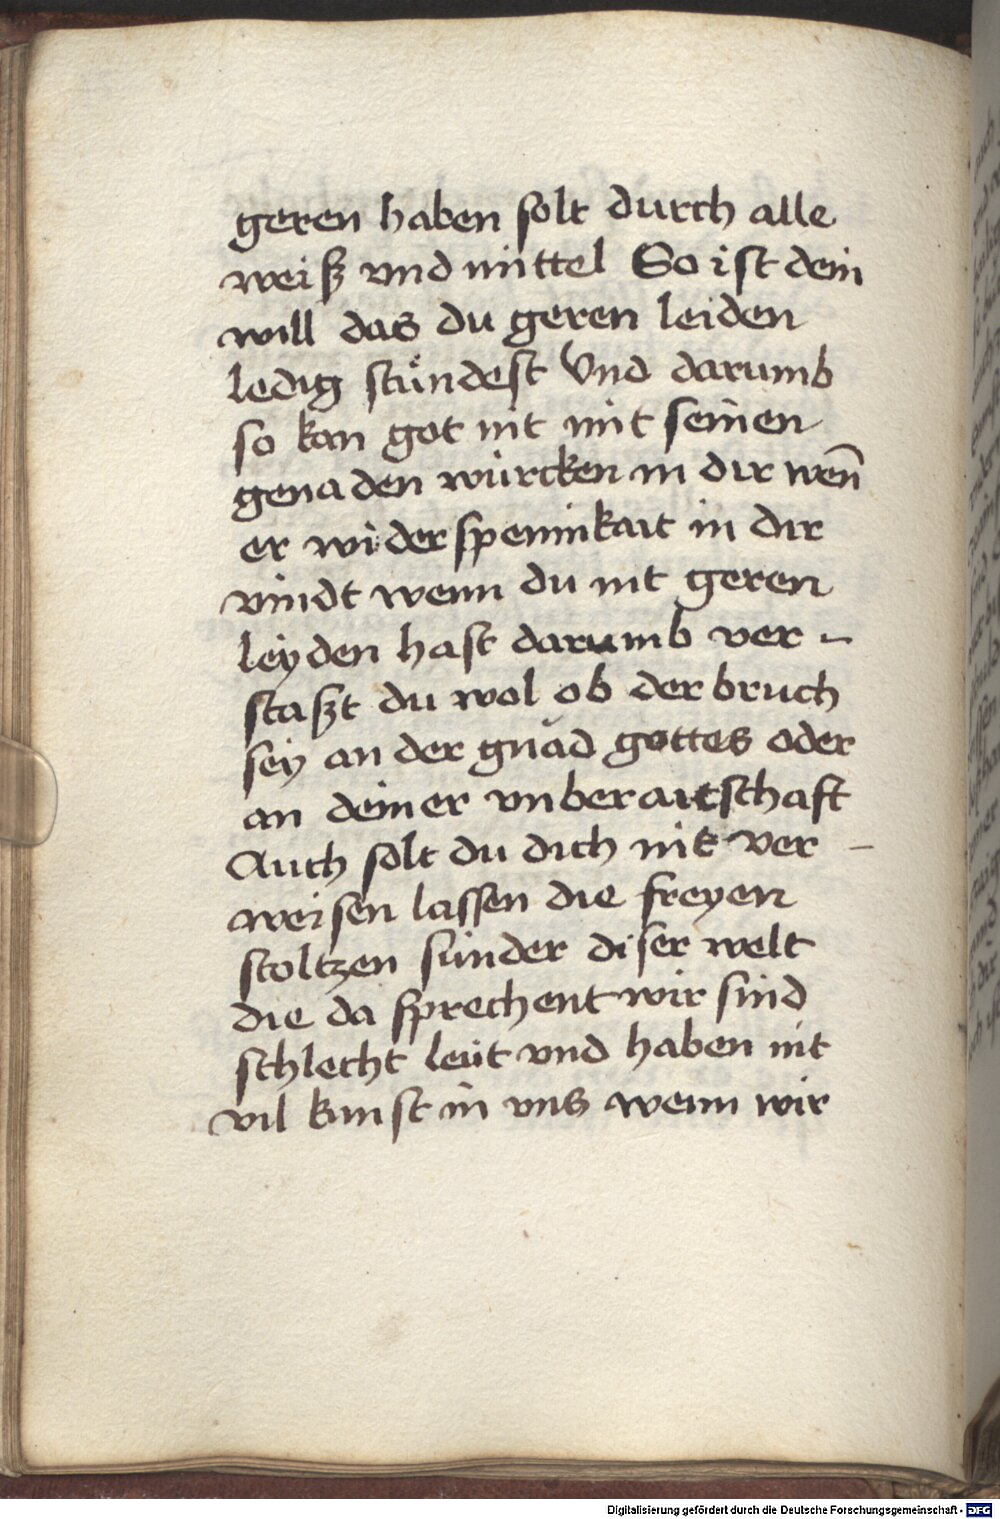 geren haben solt durch alle
weiß vnd mittel So ist dein
will das du geren leiden
ledig stu̇ndest Vnd darumb
so kan got nit mit seinen
genaden würcken in dir wen̄
er widerspeninkait in dir
vindt wenn du nit geren
leyden hast darumb ver -
staßt du wol ob der bruch
sey an der gnăd gottes oder
an deiner vnberaitschaft
Auch solt du dich nit ver -
weisen lassen die freyen
stoltzen sünder diser welt
die da sprechent wir sind
schlecht leüt vnd haben nit
vil kunst in vns wenn wir
Digitalisierung gefördert durch die Deutsche Forschungsgemeinschaft - DFG